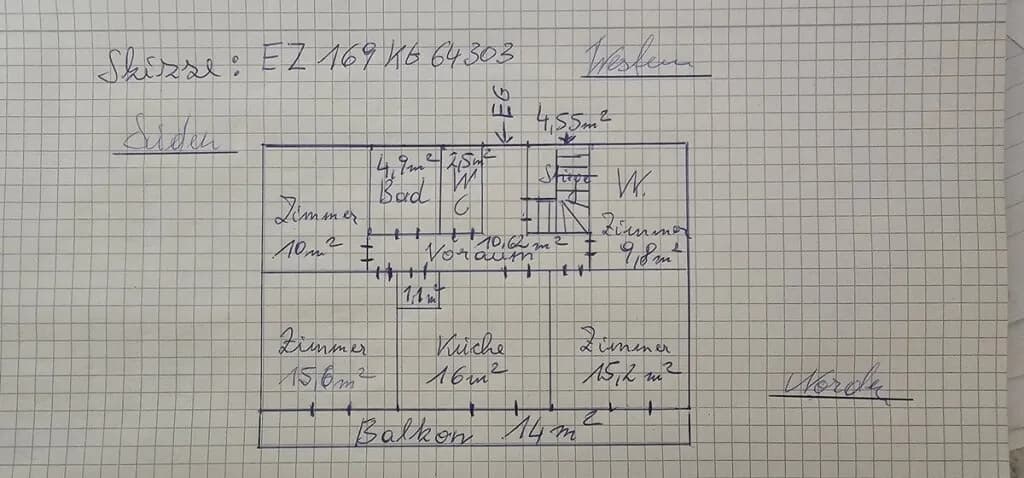 Skizze: EZ 169 KG 64303
Westen
Süden
EG
4,55m²
4,9m²
Bad
2,5m²
WC
Stiege
W.
Zimmer
9,8m²
Zimmer
10m²
10,62m²
Voraum
1,1m²
Zimmer
15,6m²
Küche
16m²
Zimmer
15,2m²
Norden
Balkon 14m²